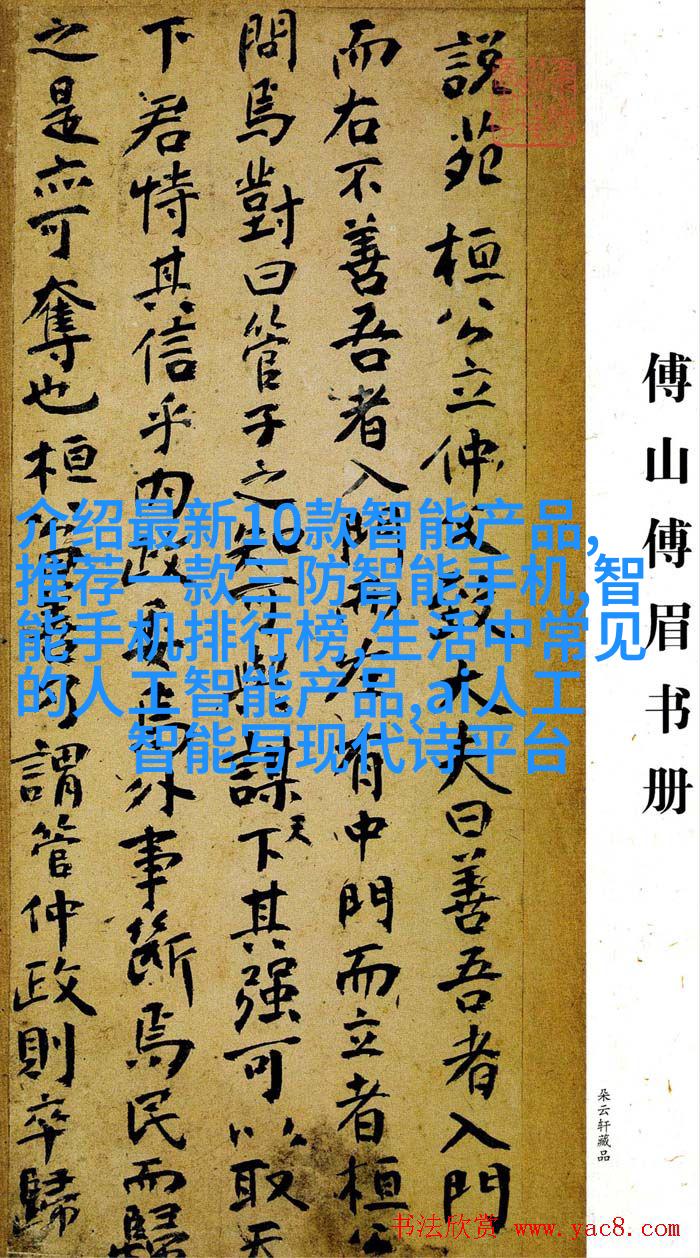 傅山傅眉书册
朵云轩藏品
說苑 桓公立仲父致大夫曰善吾者入門
而右不善吾者入門而左有中門而立者桓公
問焉對曰管子之知可與謀天下其强可以取天
下君恃其信乎内政委焉外事斷焉民而歸
之是亦可奪也桓公曰善乃謂管仲政則卒歸
介绍最新10款智能产品,
推荐一款三防智能手机,智
能手机排行榜,生活中常见
的人工智能产品,ai人工
智能写现代诗平台
书法欣赏 www.yac8.com